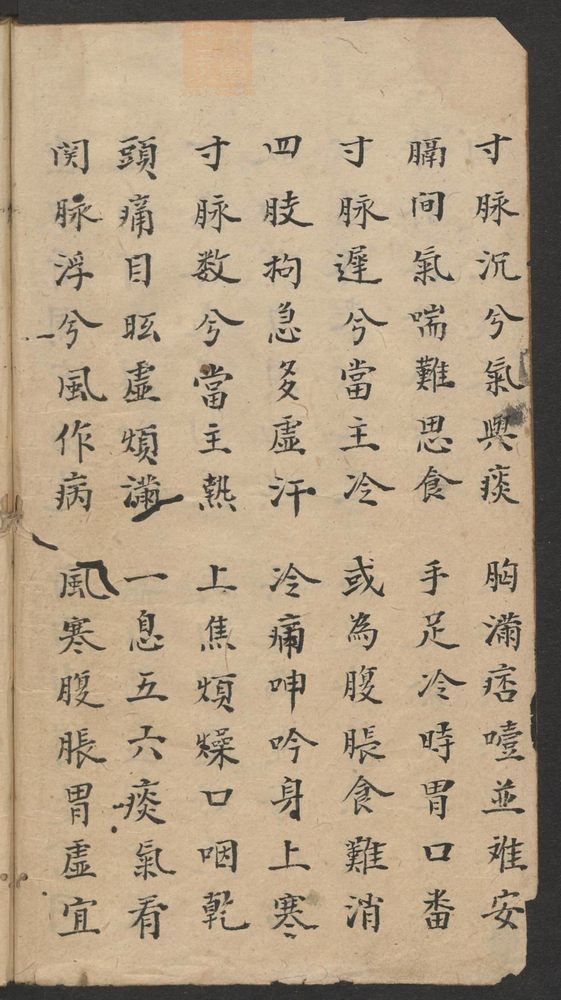 寸脉沉兮氣與痰 胸滿痞噎並难安
膈间氣喘難思食 手足冷時胃口畨
寸脉遲兮當主冷 或為腹脹食難消
四肢拘急多虛汗 冷痛呻吟身上寒
寸脉数兮當主熱 上焦煩燥口咽乾
頭痛目眩虛煩滿 一息五六痰氣看
関脉浮兮風作病 風寒腹脹胃虛宜